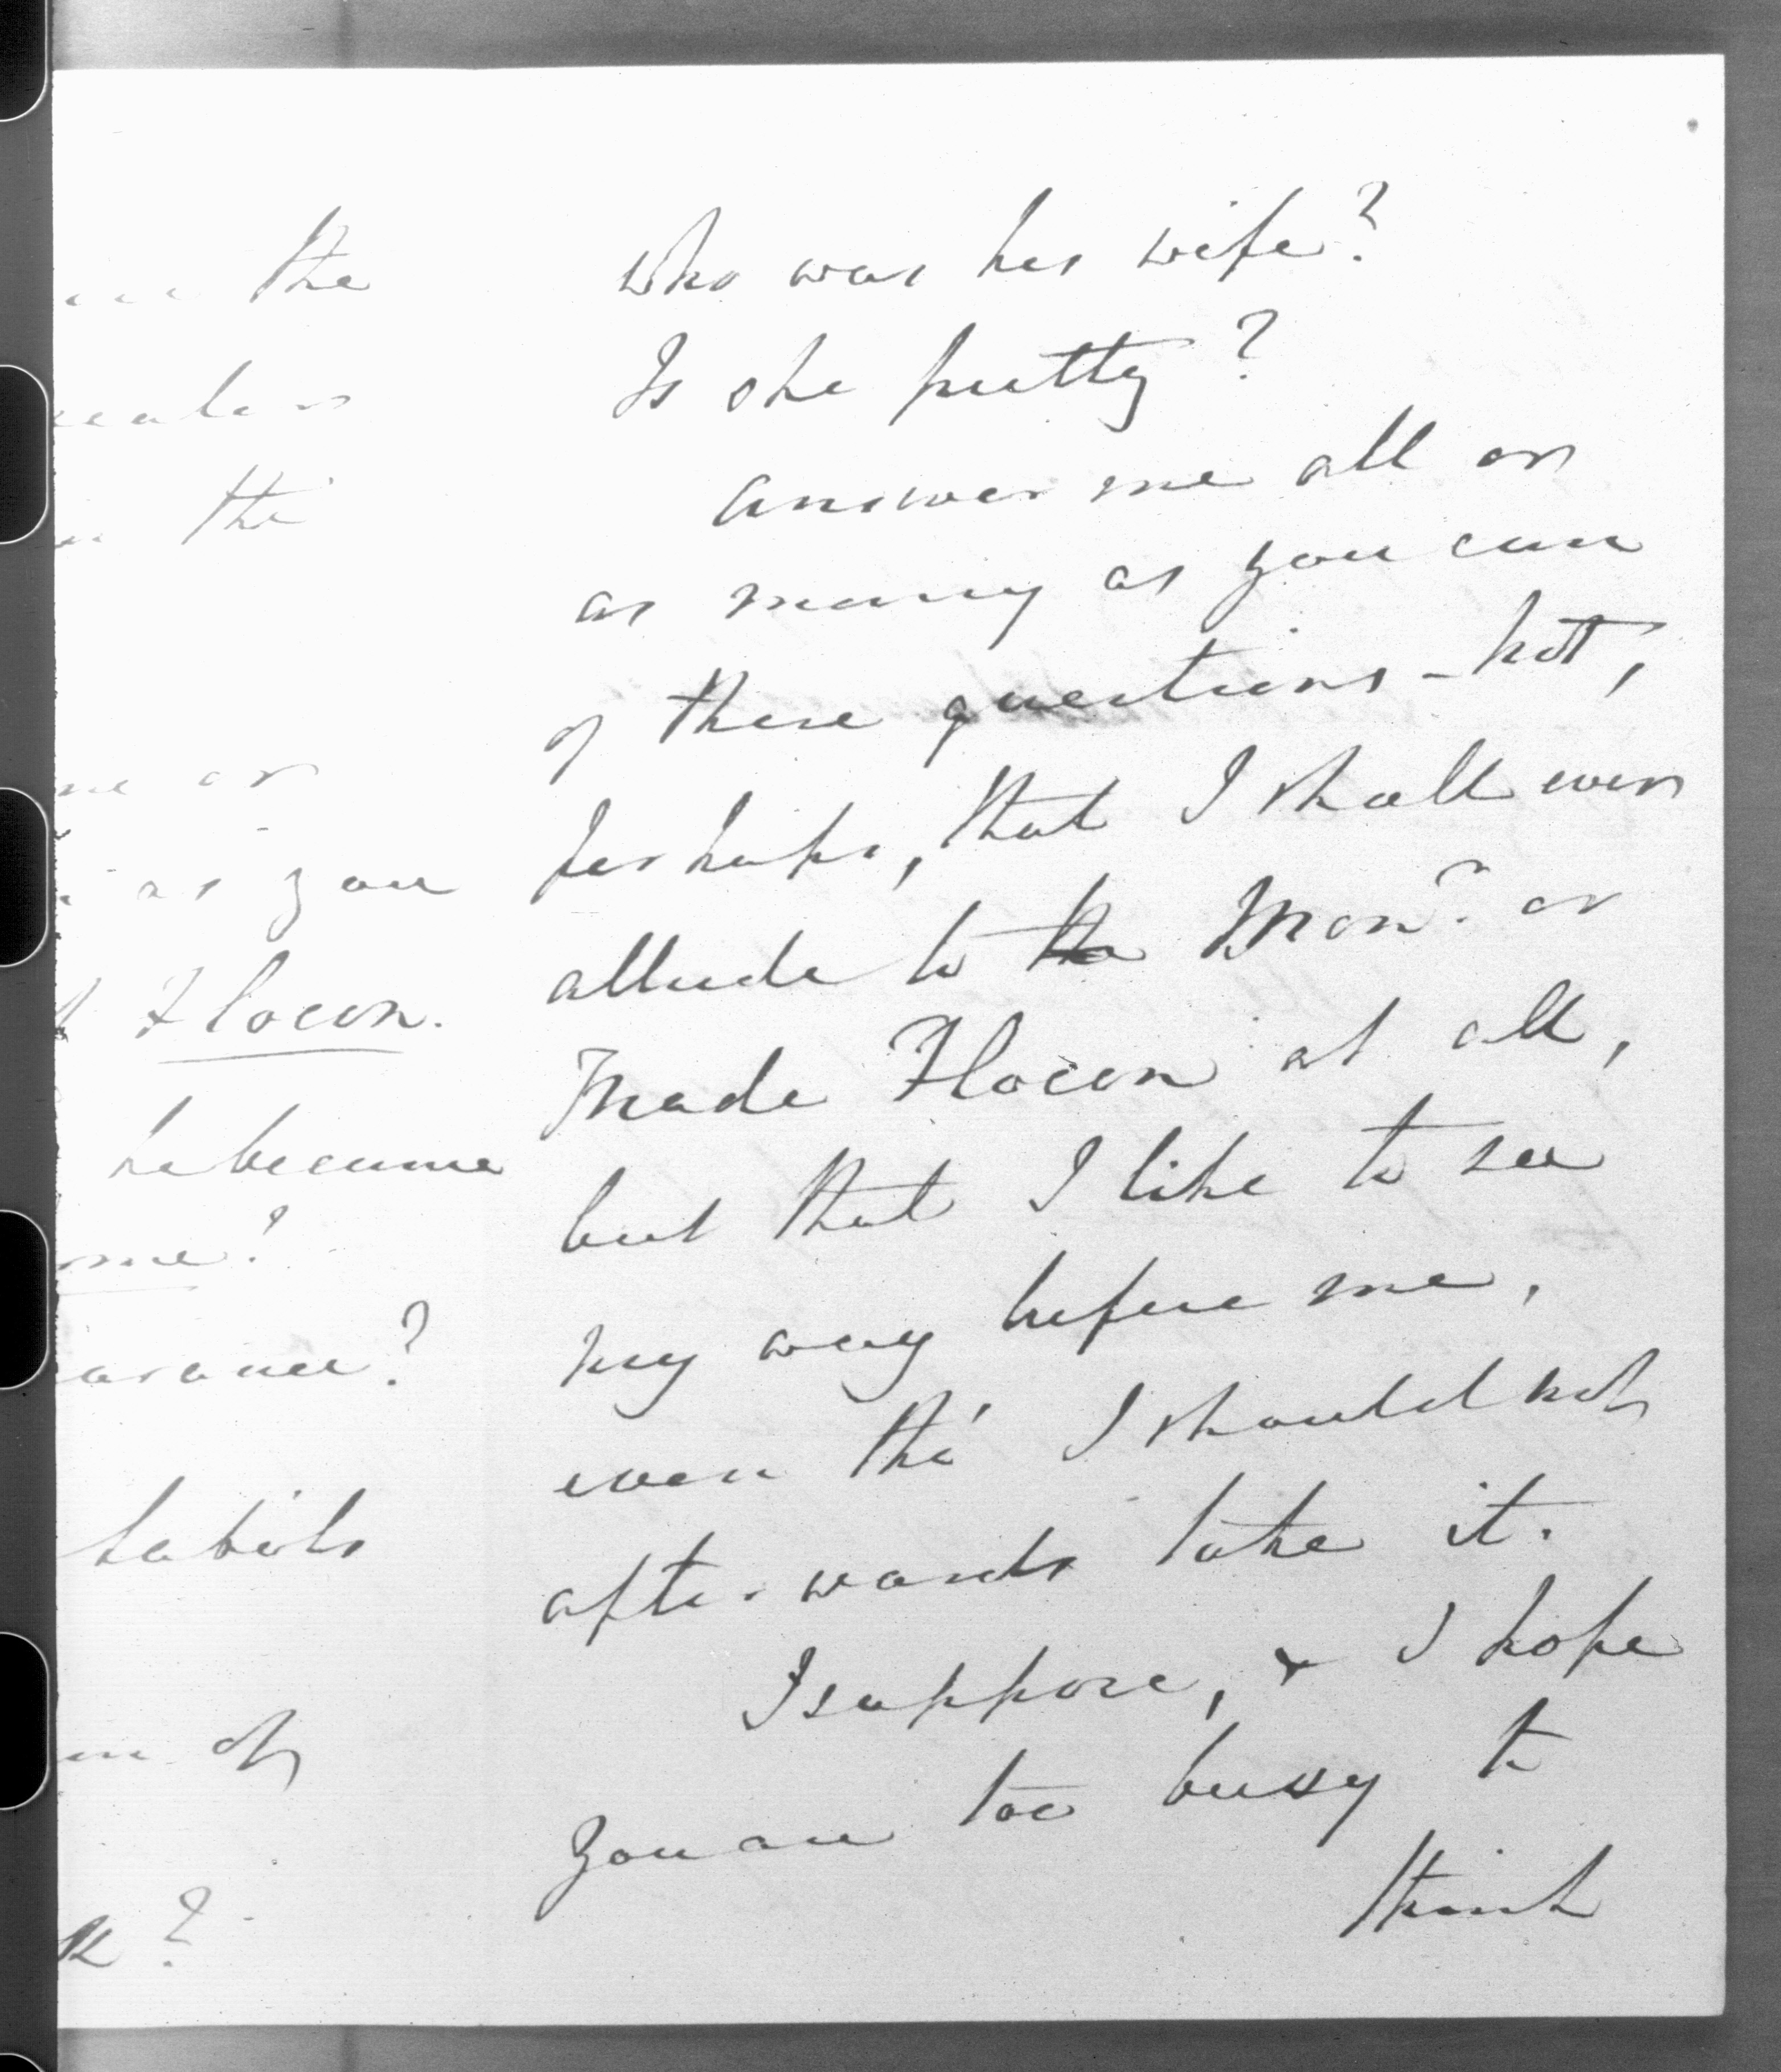 the
the
or
as you
Flocon.
he became
me?
arance?
habits
of
k?
Who was his wife?
Is she pretty?
Answer me all or
as many as you can
of these questions - not,
perhaps, that I shall ever
allude to the Monr. or
Made Flocon at all,
but that I like to see
my way before me,
even tho' I should not
afterwards take it.
I suppose, & I hope
you are too busy to
think